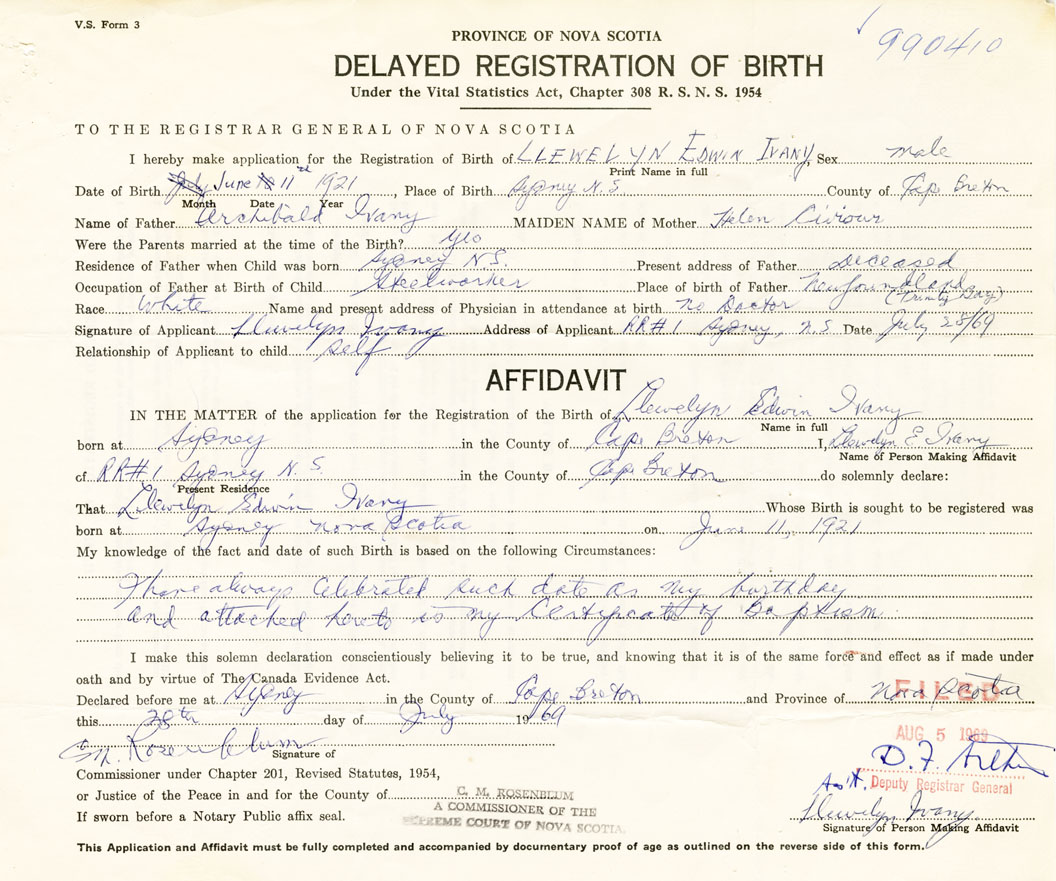 V.S. Form 3
990410
PROVINCE OF NOVA SCOTIA
DELAYED REGISTRATION OF BIRTH
Under the Vital Statistics Act, Chapter 308 R. S. N. S. 1954
TO THE REGISTRAR GENERAL OF NOVA SCOTIA
I hereby make application for the Registration of Birth of LLEWELYN EDWIN IVANY, Sex male
Print Name in full
Date of Birth June 11 1921, Place of Birth Sydney N.S County of Cape Breton
Month Date Year
Name of Father Archibald Ivany MAIDEN NAME of Mother Helen
Were the Parents married at the time of the Birth? yes
Residence of Father when Child was born Sydney N.S. Present address of Father Deceased
Occupation of Father at Birth of Child Steelworker Place of birth of Father Newfoundland
(Trinity Bay)
Race White Name and present address of Physician in attendance at birth no Doctor
Signature of Applicant Llewelyn Ivany Address of Applicant RR#1 Sydney, N.S Date July 28/69
Relationship of Applicant to child self
AFFIDAVIT
IN THE MATTER of the application for the Registration of the Birth of Llewelyn Edwin Ivany
Name in full
born at Sydney in the County of Cape Breton I, Llewelyn E Ivany
Name of Person Making Affidavit
of RR#1 Sydney N.S. in the County of Cape Breton do solemnly declare:
Present Residence
That Llewelyn Edwin Ivany Whose Birth is sought to be registered was
born at Sydney Nova Scotia on June 11, 1921
My knowledge of the fact and date of such Birth is based on the following Circumstances:
I have always celebrated such date as my birthday
and attached hereto is my Certificate of Baptism.
I make this solemn declaration conscientiously believing it to be true, and knowing that it is of the same force and effect as if made under
oath and by virtue of The Canada Evidence Act.
Declared before me at Sydney in the County of Cape Breton and Province of Nova Scotia
FILED
this 28th day of July 1969
AUG 5 1969
C M. Rosenblum
Signature of
D. F.
Commissioner under Chapter 201, Revised Statutes, 1954,
Ass't. Deputy Registrar General
or Justice of the Peace in and for the County of C. M. ROSENBLUM
A COMMISSIONER OF THE
Llewelyn Ivany
If sworn before a Notary Public affix seal. SUPREME COURT OF NOVA SCOTIA.
Signature of Person Making Affidavit
This Application and Affidavit must be fully completed and accompanied by documentary proof of age as outlined on the reverse side of this form.